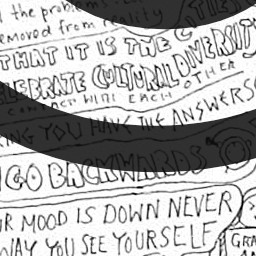 the problems
removed from reality
THAT IT IS THE
CELEBRATE CULTURAL DIVERSITY
CONNECT WITH EACH OTHER
YOU HAVE THE ANSWERS
GO BACKWARDS
MOOD IS DOWN NEVER
WAY YOU SEE YOURSELF